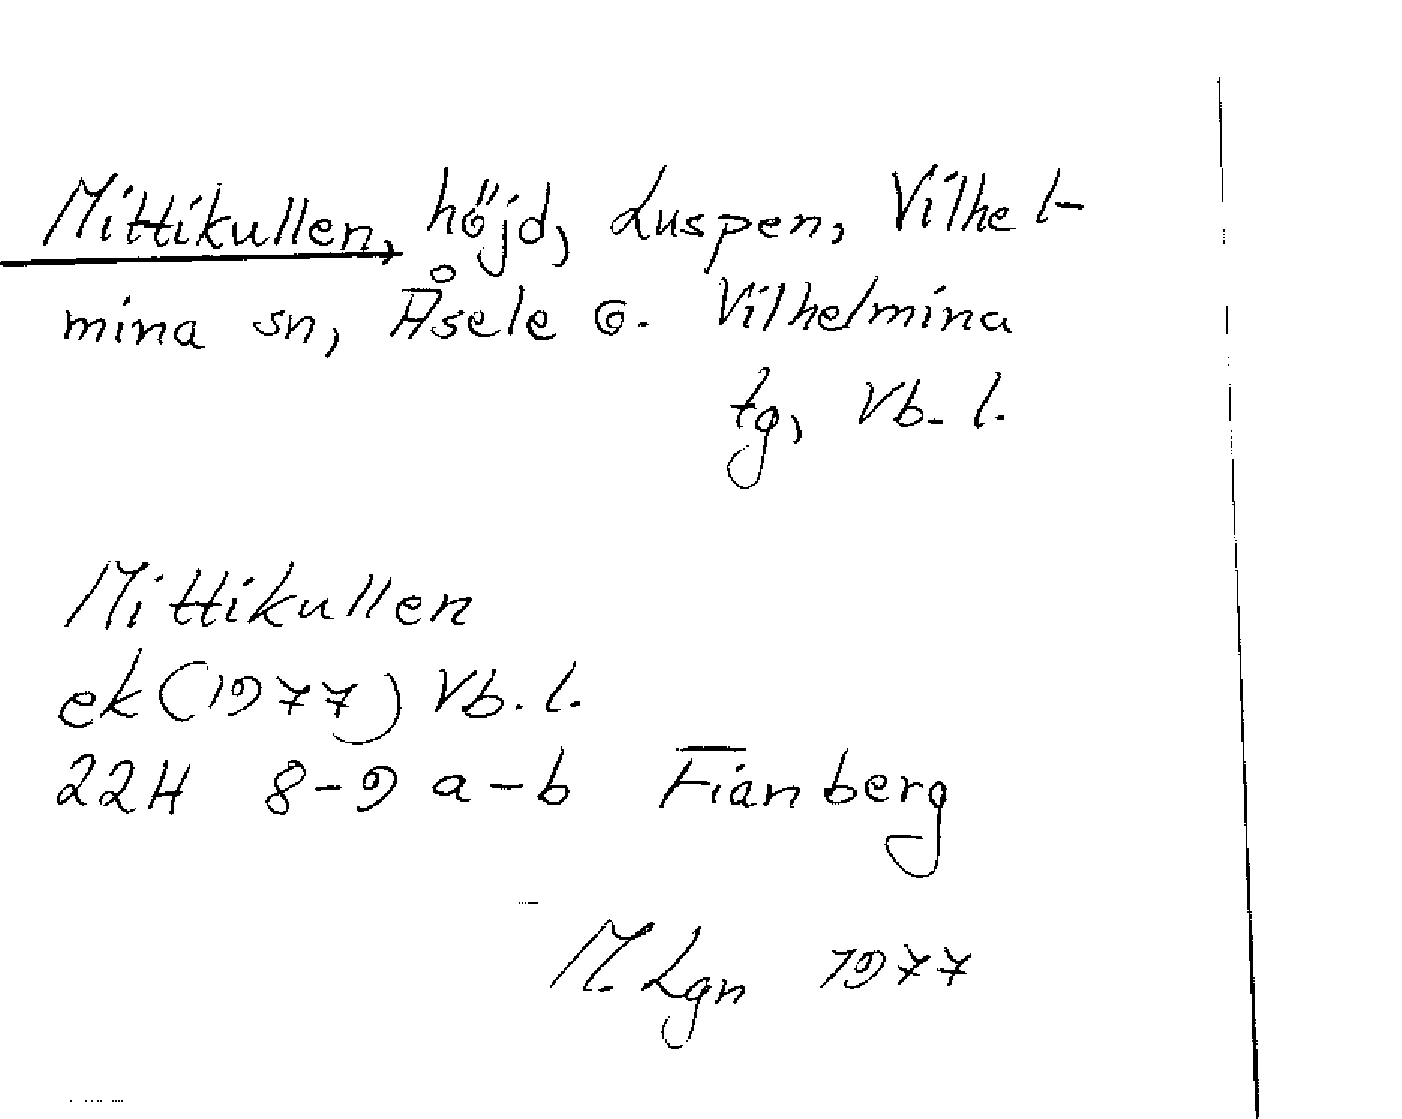 Mittikullen, höjd, Luspen, Vilhel-
mina sn, Åsele
Vilhelmina
tg, Vb. l.
Mittikullen
ek (1977) Vb. l.
22H 8-9 a-b Fianberg
M. Lgn 1977